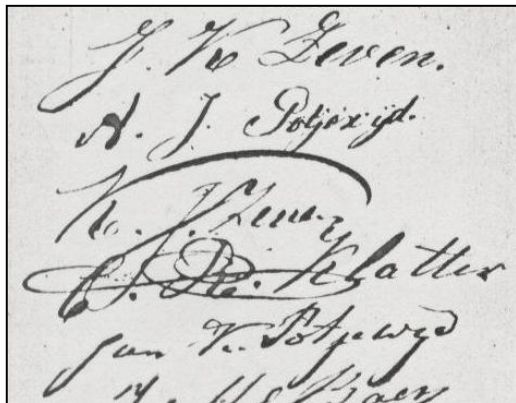 J. K. Zeven.
A. J. Potjewijd.
K. J. Zeven
R. Klatter
Jan K. Potjewijd